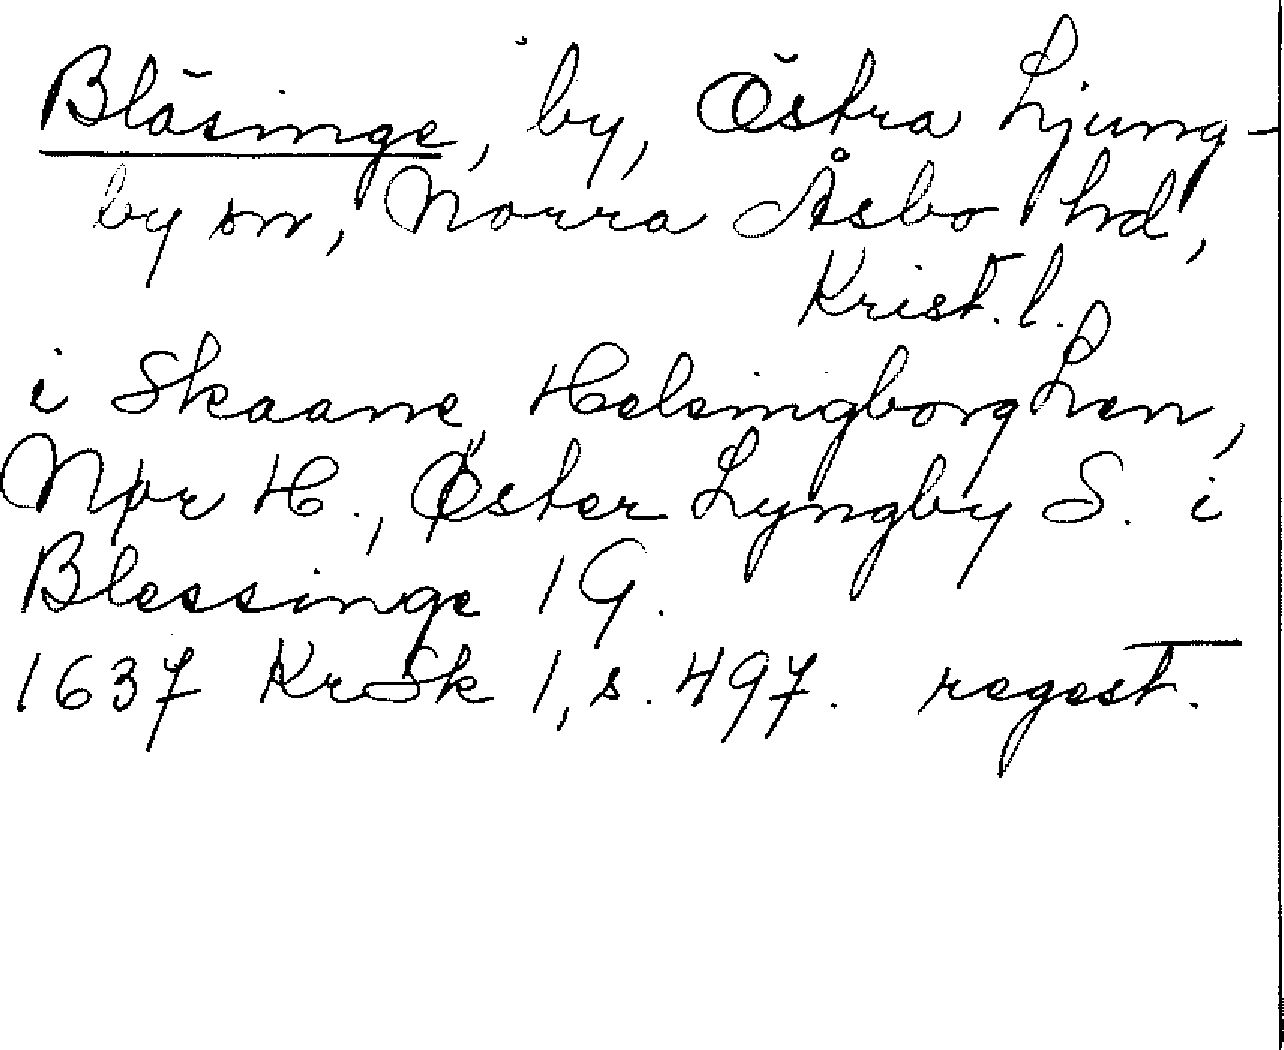 Bläsinge, by, Östra Ljung-
by sn, Norra Åsbo hd,
Krist. l.
i Skaane, Helsingborg Len,
Nør H., Øster Lyngby S. i
Blessinge 1 G.
1637 KrSk 1, s. 497. regest.